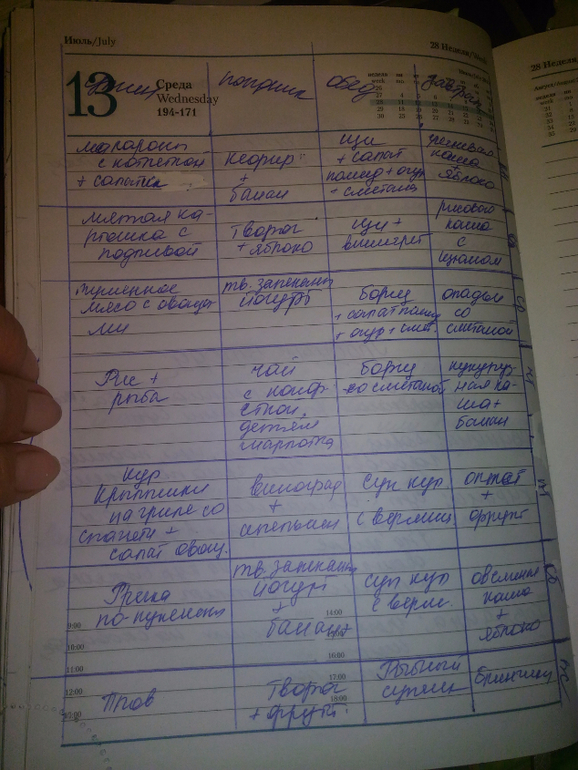 Июль/July
28 Неделя/Week
13
Среда
Wednesday
194-171
ужин
полдник
обед
завтрак
макароны
с котлетой
+ салатик
кефир
+
банан
щи
+ салат
помид + огур
+ сметана
гречневая
каша
+
яблоко
мятная ка-
ртошка с
подливой
творог
+ яблоко
щи +
винегрет
рисовая
каша
с
изюмом
тушенное
мясо с овоща
ми
тв. запеканка
йогурт
борщ
+ салат помид
+ огур + смет.
оладьи
со
сметаной
Рис +
рыба
чай
с конф-
етой,
детям
борщ
со сметаной
кукуруз
ная ка-
ша +
банан
кур
крылышки
на гриле со
спагети +
салат овощ.
виноград
+
суп кур
с вермиш
омлет
+
фрукт
Гречка
по-купечески
тв. запеканка
йогурт
+
банан
суп кур
с верм.
овсяная
каша
+
яблоко
Плов
творог
+ фрукт
Рыбный
супчик
блинчики
9:00
10:00
11:00
12:00
14:00
16:00
17:00
18:00
28 Неделя